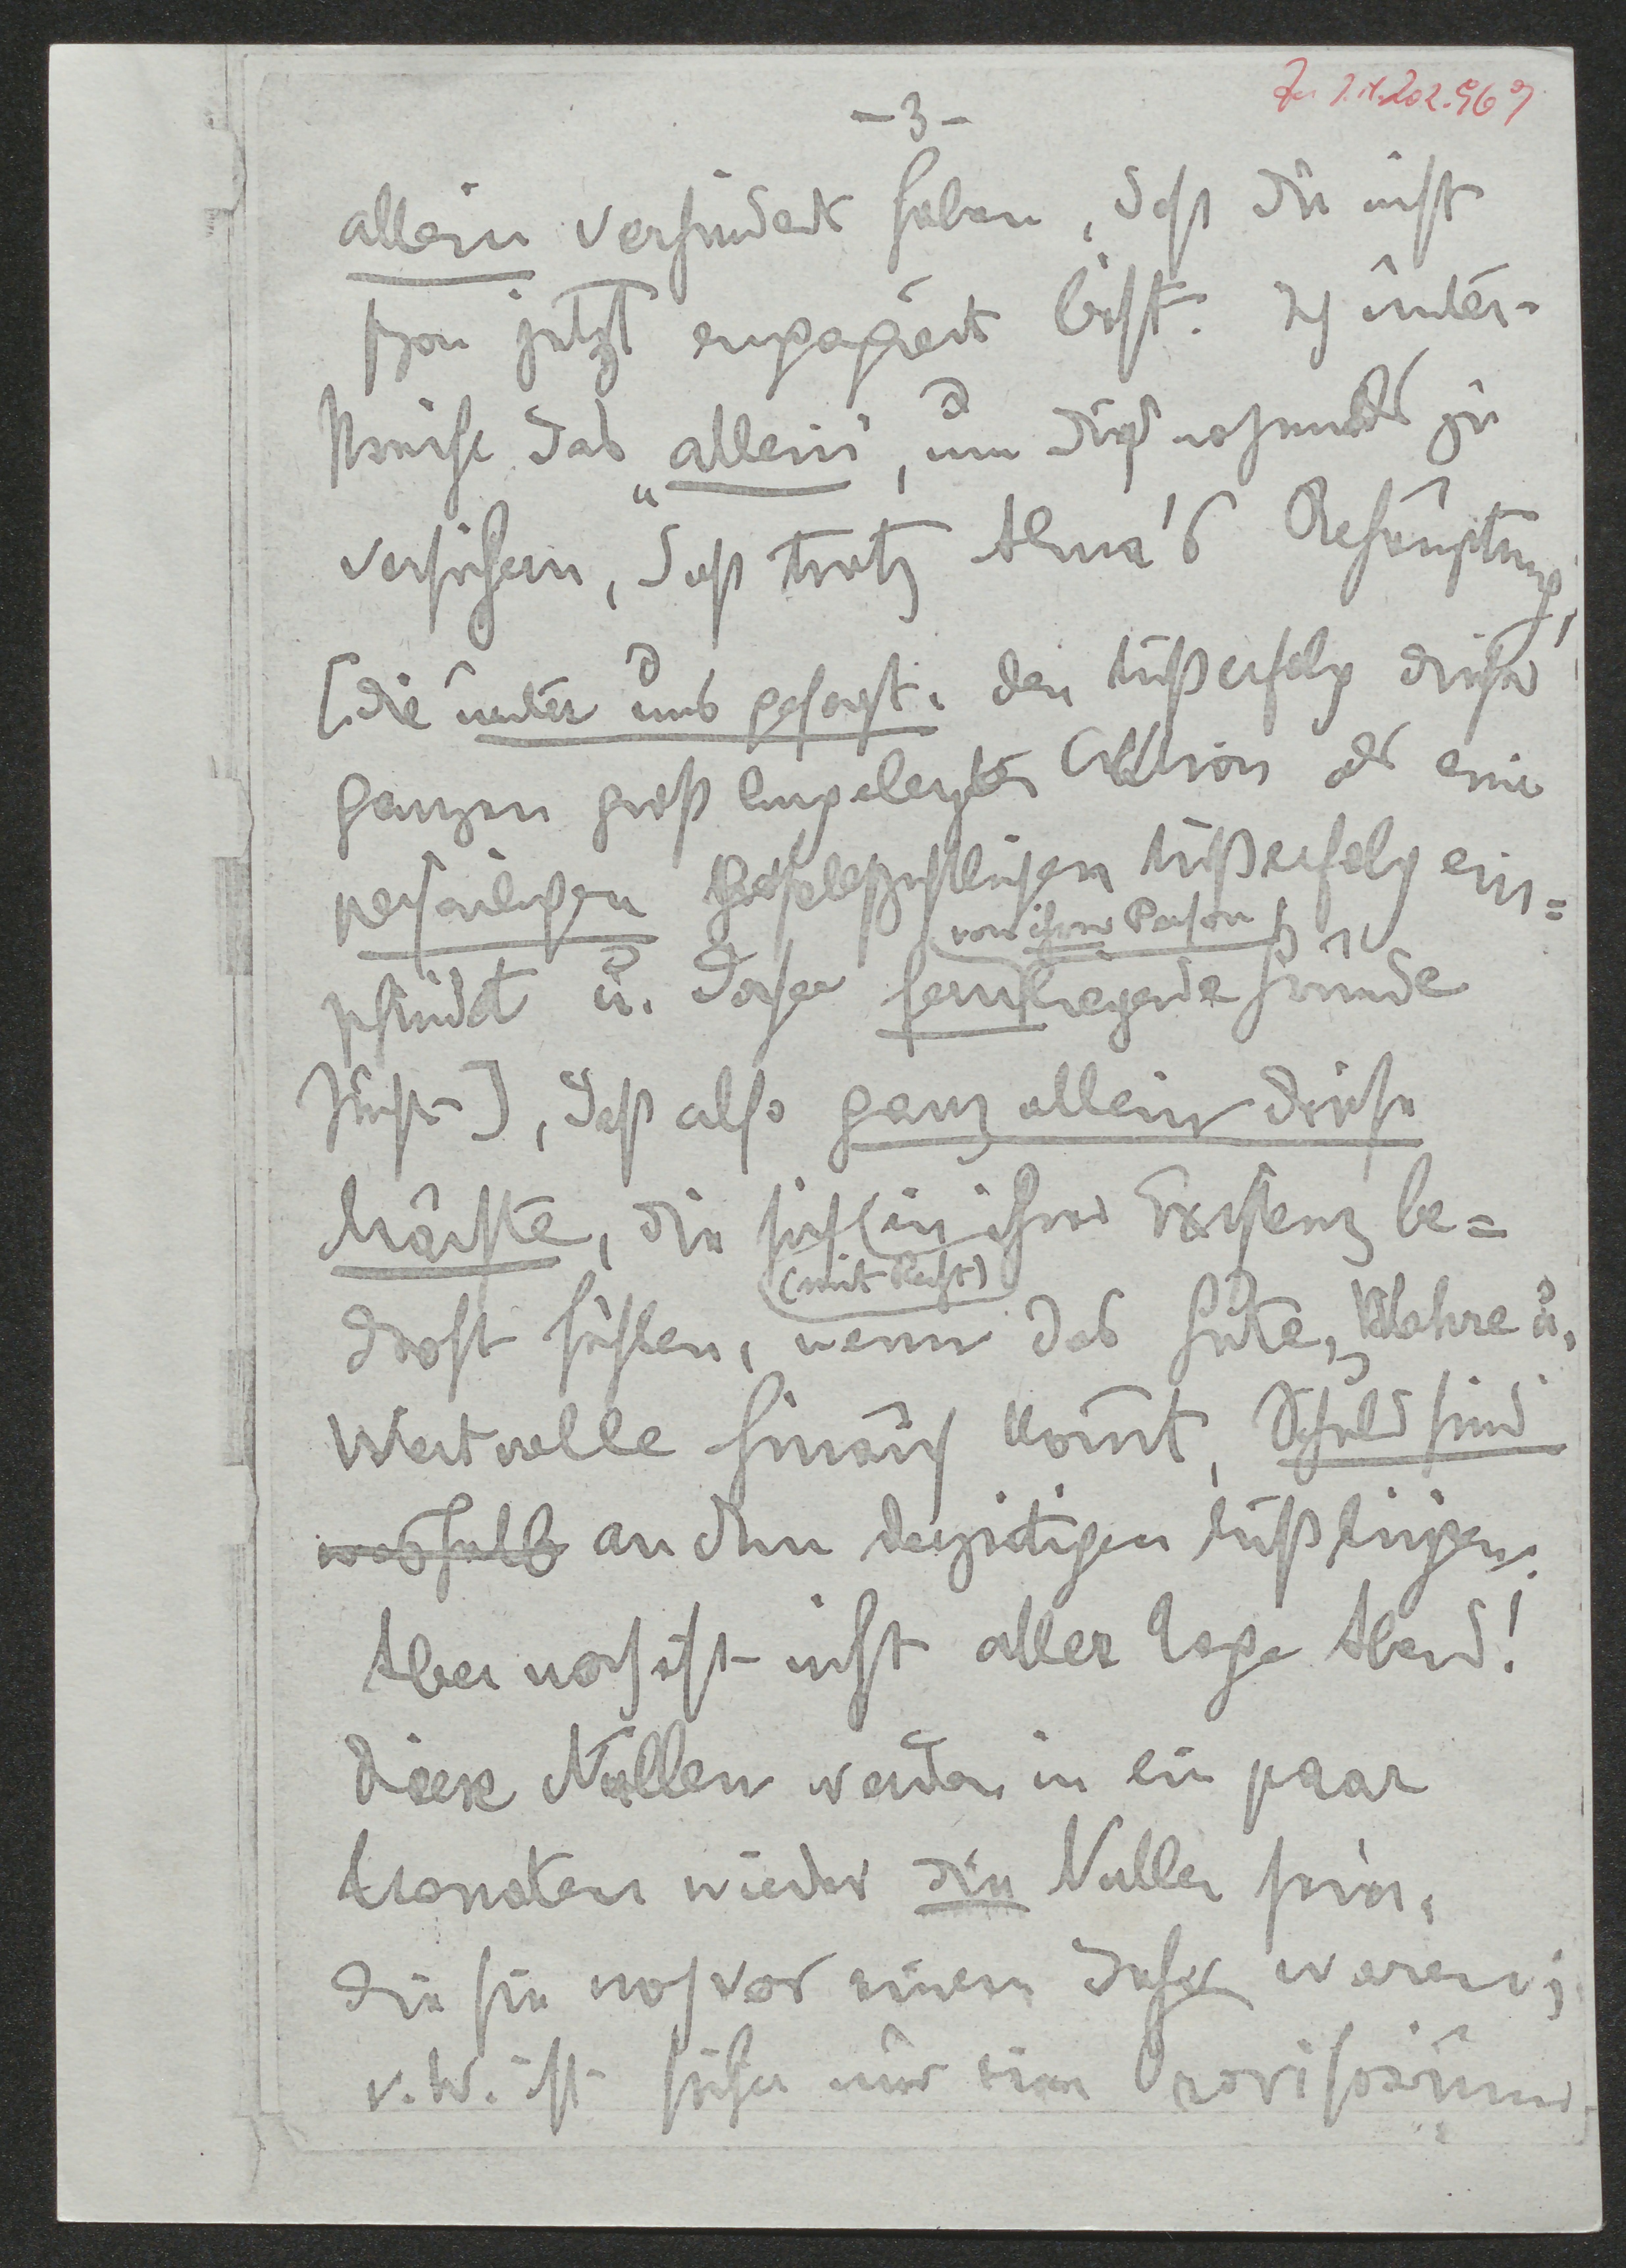 Zu I.N. 202.969
- 3 -
allein verhindert haben, daß du nicht
schon jetzt engagiert bist. Ich unter-
streiche das „allein", um dich nochmals zu
versichern, daß trotz Alma's Behauptung,
[die unter uns gesagt, den Mißerfolg dieser
ganzen groß angelegten Aktion als eine
persönlichen gesellschaftlichen Mißerfolg em=
pfindet u. daher fernliegende Gründe
(von ihrer Person)
sucht], daß also ganz allein diese
Mächte, die sich in ihrer Existenz be=
(mit Recht)
droht fühlen, wenn das Gute, Wahre u.
Wertvolle hinauf kommt, Schuld sind
weshalb an dem derzeitigen Mißlingen.
Aber noch ist nicht aller Tage Abend!
Diese Nullen werden in ein paar
Monaten wieder die Nullen sein,
die sie noch vor einem Jahr waren;
v. W. ist sicher nur ein Provisorium